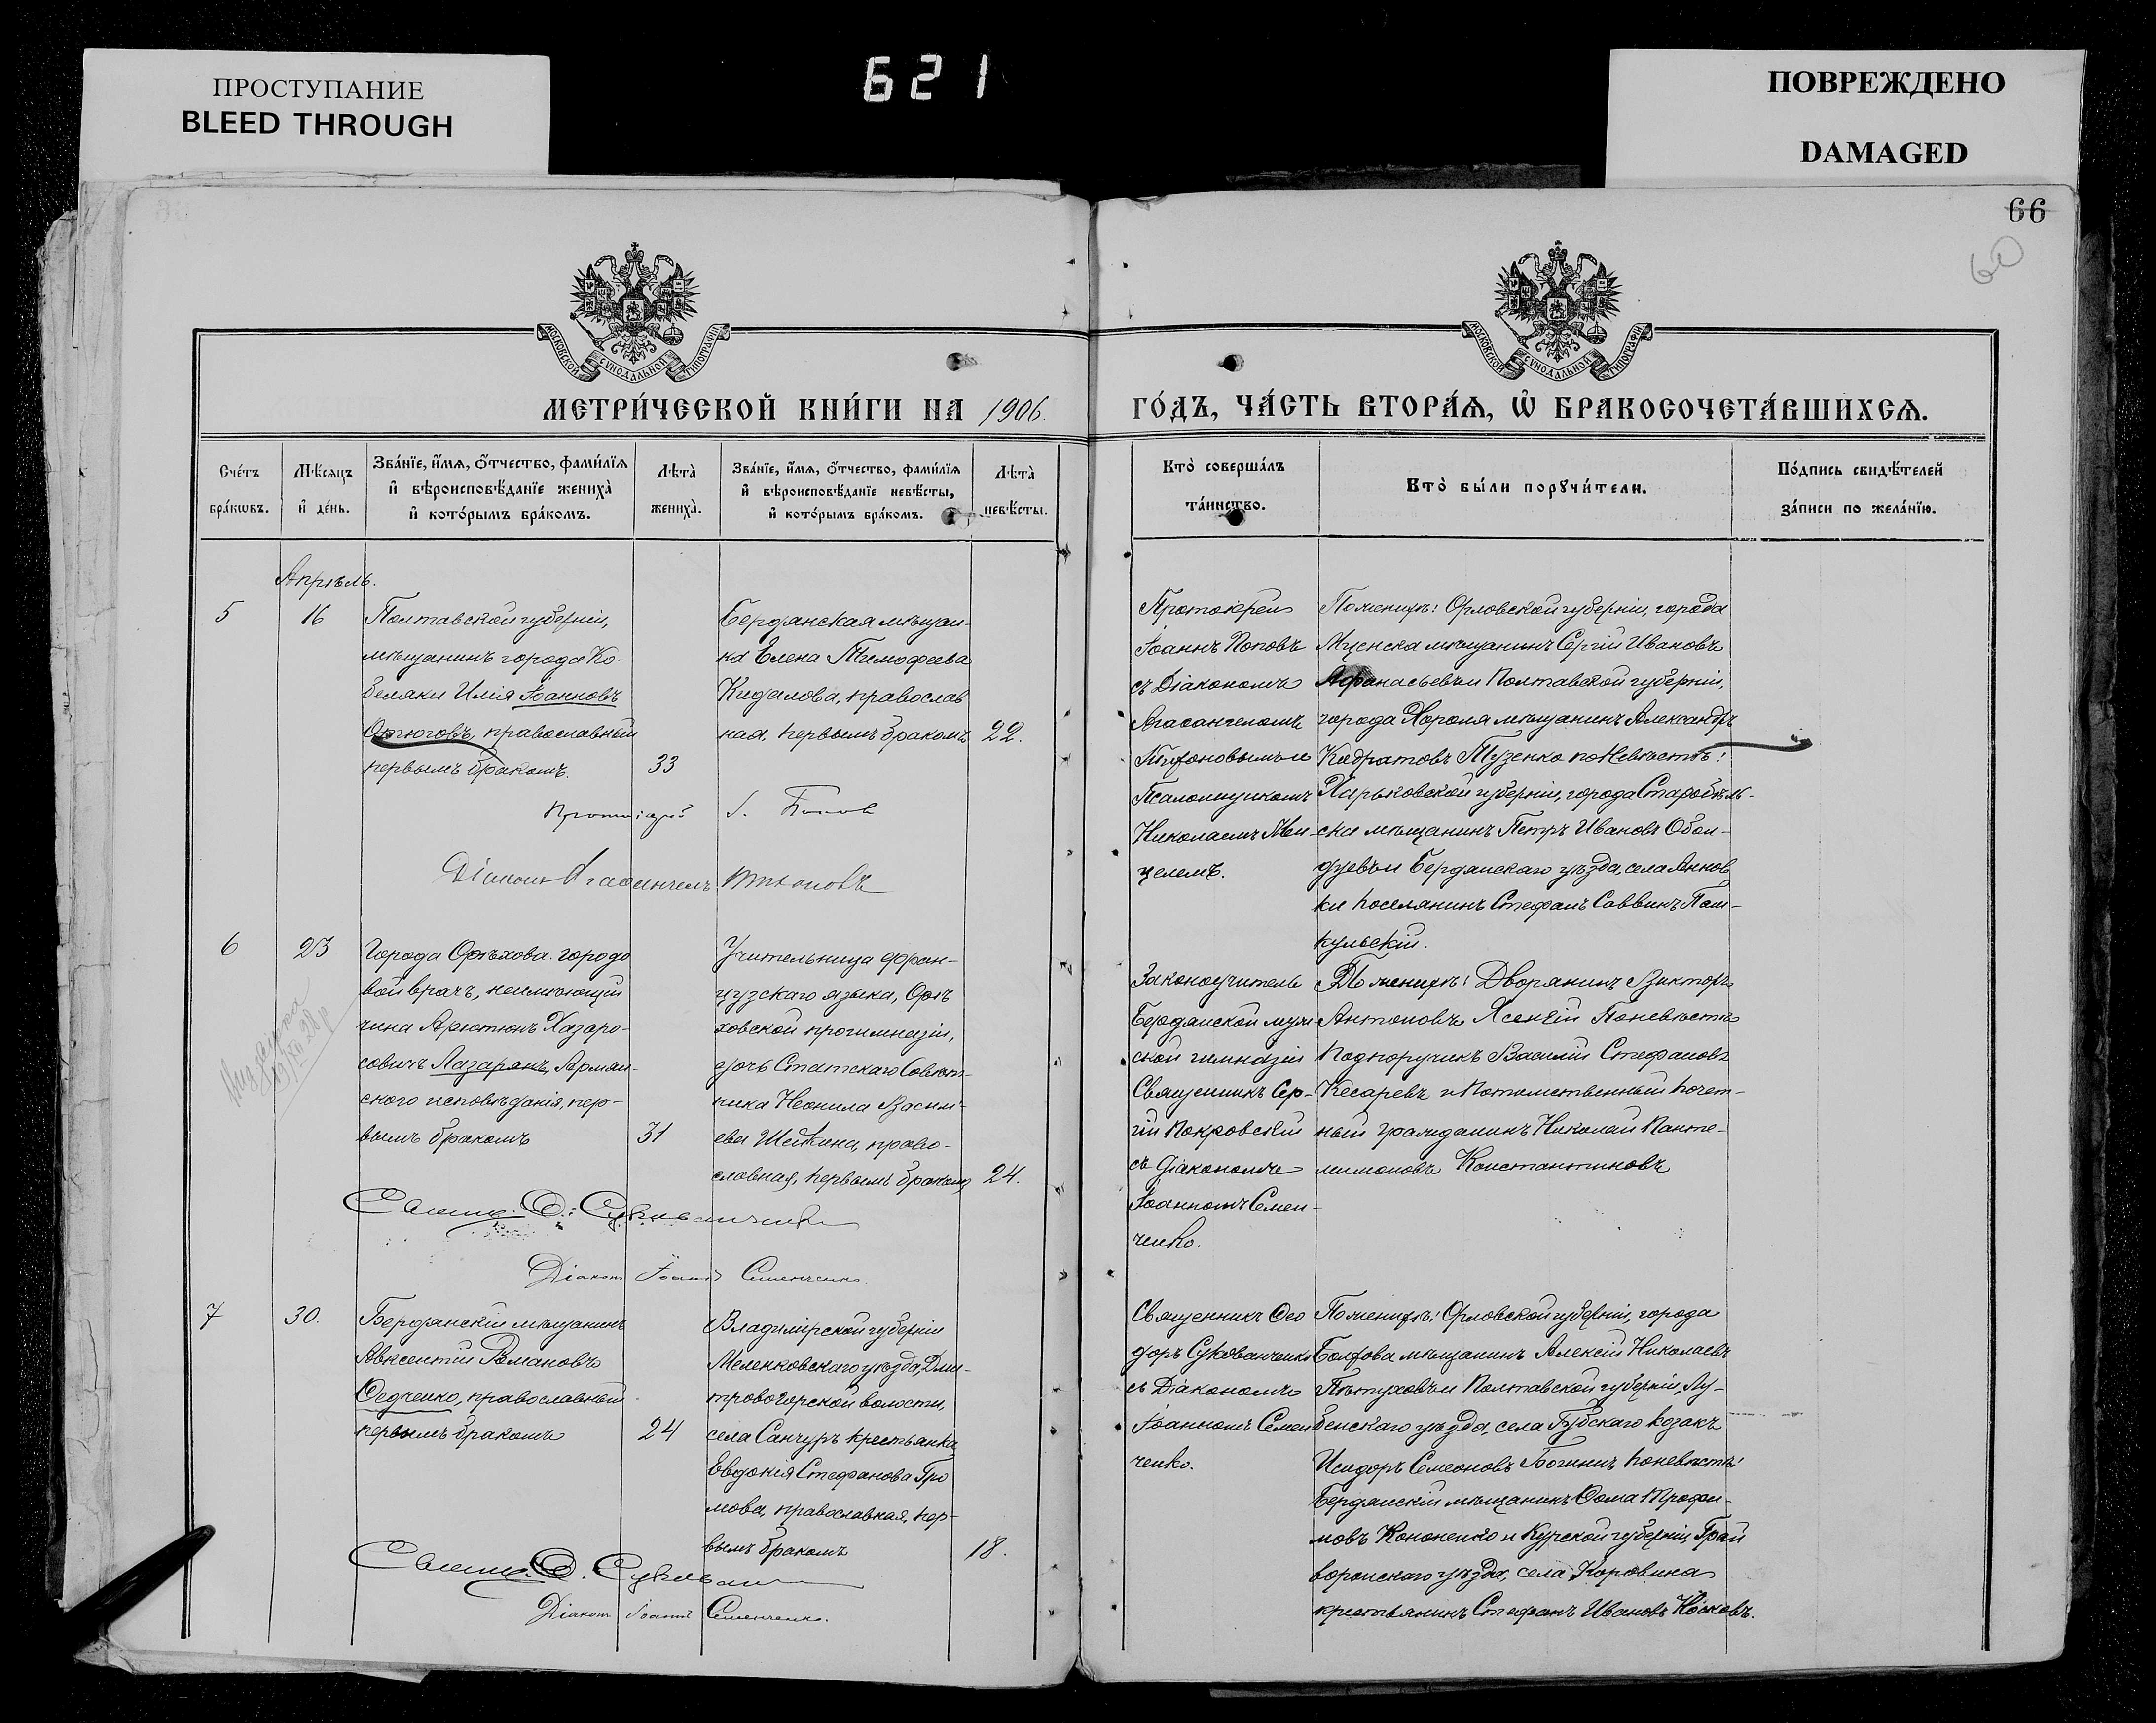 ПРОСТУПАНИЕ
BLEED THROUGH
621
ПОВРЕЖДЕНО
DAMAGED
66
60
МОСКОВСКОЙ СѴНОДАЛЬНОЙ ТИПОГРАФІИ
МОСКОВСКОЙ СѴНОДАЛЬНОЙ ТИПОГРАФІИ
МЕТРИ́ЧЕСКОЙ КНИ́ГИ НА 1906.
ГО́ДЪ, ЧА́СТЬ ВТОРА́Ѧ, Ѡ҆ БРАКОСОЧЕТА́ВШИХСѦ.
Сче́тъ
бра́кѡвъ.
Мѣ́сяцъ
и҆ де́нь.
Зва́нїе, и҆́мѧ, ѻ҆́тчество, фами́лїѧ
и҆ вѣроисповѣ́данїе жениха̀
и҆ кото́рымъ бра́комъ.
Лѣ́та̀
жениха̀.
Зва́нїе, и҆́мѧ, ѻ҆́тчество, фами́лїѧ
и҆ вѣроисповѣ́данїе невѣ́сты,
и҆ кото́рымъ бра́комъ.
Лѣ́та̀
невѣ́сты.
Кто̀ соверша́лъ
та́инство.
Кто̀ бы́ли порꙋчи́тели.
По́дпись свидѣ́телей
за́писи по жела́нїю.
Апрѣль.
5
16
Полтавской губерніи,
мѣщанинъ города Ко-
беляки Илія Іоанновъ
православный
первымъ бракомъ.
33
Бердянская мѣщан-
ка Елена Тимофеева
Кидалова, православ
ная, первымъ бракомъ
22.
Протоіерей І. Попов
Діаконъ Агафангелъ
Протоіерей
Іоаннъ Поповъ
съ Діакономъ
Агафангеломъ
Псаломщикомъ
Николаемъ Мен-
целемъ.
По женихѣ: Орловской губерніи, города
Мценска мѣщанинъ Сергій Ивановъ
Афанасьевъ и Полтавской губерніи,
города Хороля мѣщанинъ Александръ
Кодратовъ Тузенко по невѣстѣ:
Харьковской губерніи, города Старобѣль-
ска мѣщанинъ Петръ Ивановъ Обол-
дуевъ и Бердянскаго уѣзда, села Аннов
ки поселянинъ Стефанъ Саввинъ
кульскій.
6
23
Города Орѣхова городо
вой врачъ, неимѣющій
чина Арютюнъ Хазаро-
совичъ Лазарянъ, Армян-
ского исповѣданія, пер-
вымъ бракомъ
31
Учительница фран-
цузскаго языка, Орѣ
ховской прогимназіи,
дочь Статскаго Совѣт-
ника Неонила Васильева
Шейкина, право-
славная, первымъ бракомъ
24.
Свящ. Ѳ. Сукованченко
Діаконъ Іоаннъ Семенченко.
Законоучитель
Бердянской муж-
ской гимназіи
Священникъ Сер-
гій Покровскій
съ діакономъ
Іоанномъ Семен-
ченко.
По женихѣ: Дворянинъ Викторъ
Антоновъ Ясенскій По невѣстѣ
Подпоручикъ Василій Стефановъ
Кесаревъ и Потомственный почет-
ный гражданинъ Николай Панте-
лимоновъ Константиновъ
7
30.
Бердянскій мѣщанинъ
Авксентій Романовъ
Федченко, православный
первымъ бракомъ
24
Владимірской губерніи
Меленковскаго уѣзда, Дми-
тровогорской волости,
села Санчуръ крестьянка
Евдокія Стефанова Гро
мова, православная, пер-
вымъ бракомъ
18.
Свящ. Ѳ. Сукован
Діаконъ Іоаннъ Семенченко.
Священникъ Ѳео
доръ Сукованченко
съ Діакономъ
Іоанномъ Семен
ченко.
По женихѣ: Орловской губерніи, города
Болхова мѣщанинъ Алексій Николаевъ
Пѣтуховъ и Полтавской губерніи, Лу-
бенскаго уѣзда, села Губскаго козакъ
Исидоръ Семеоновъ по невѣстѣ:
Бердянскій мѣщанинъ Ѳома Трофи-
мовъ Кононенко и Курской губерніи, Грай
воронскаго уѣзда, села Коровина
крестьянинъ Стефанъ Ивановъ Носковъ.